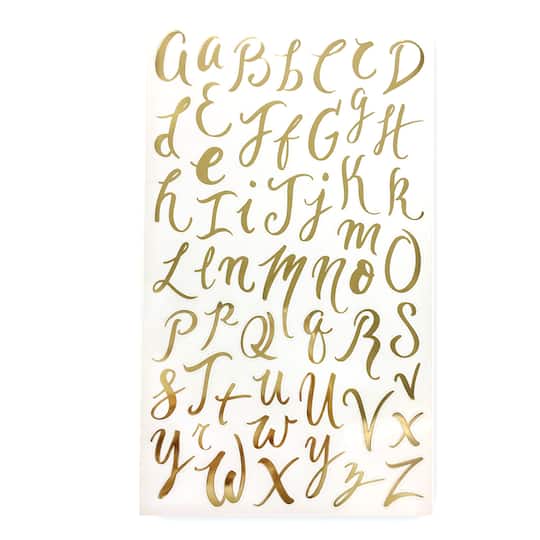 A a B b C c D
d E F f G g H
h e I i J j K k
L l n M n m o O
P p Q q R S
s T t u u U V v
y r w W X y z x Z